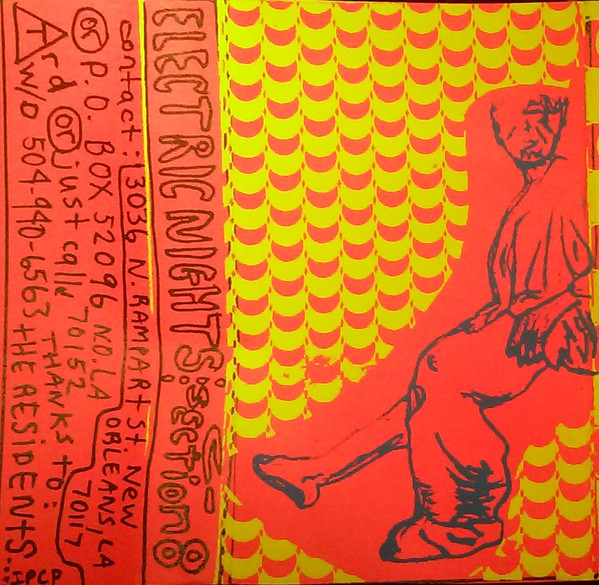 ELECTRIC NIGHTS:
section 8
contact: 3036 N. RAMPART St. New
ORLEANS, LA
70117
or P.O. BOX 52096 N.O. LA
70152
Ard or just call THANKS to:
W/O 504-940-6563 THE RESIDENTS...
IPCP